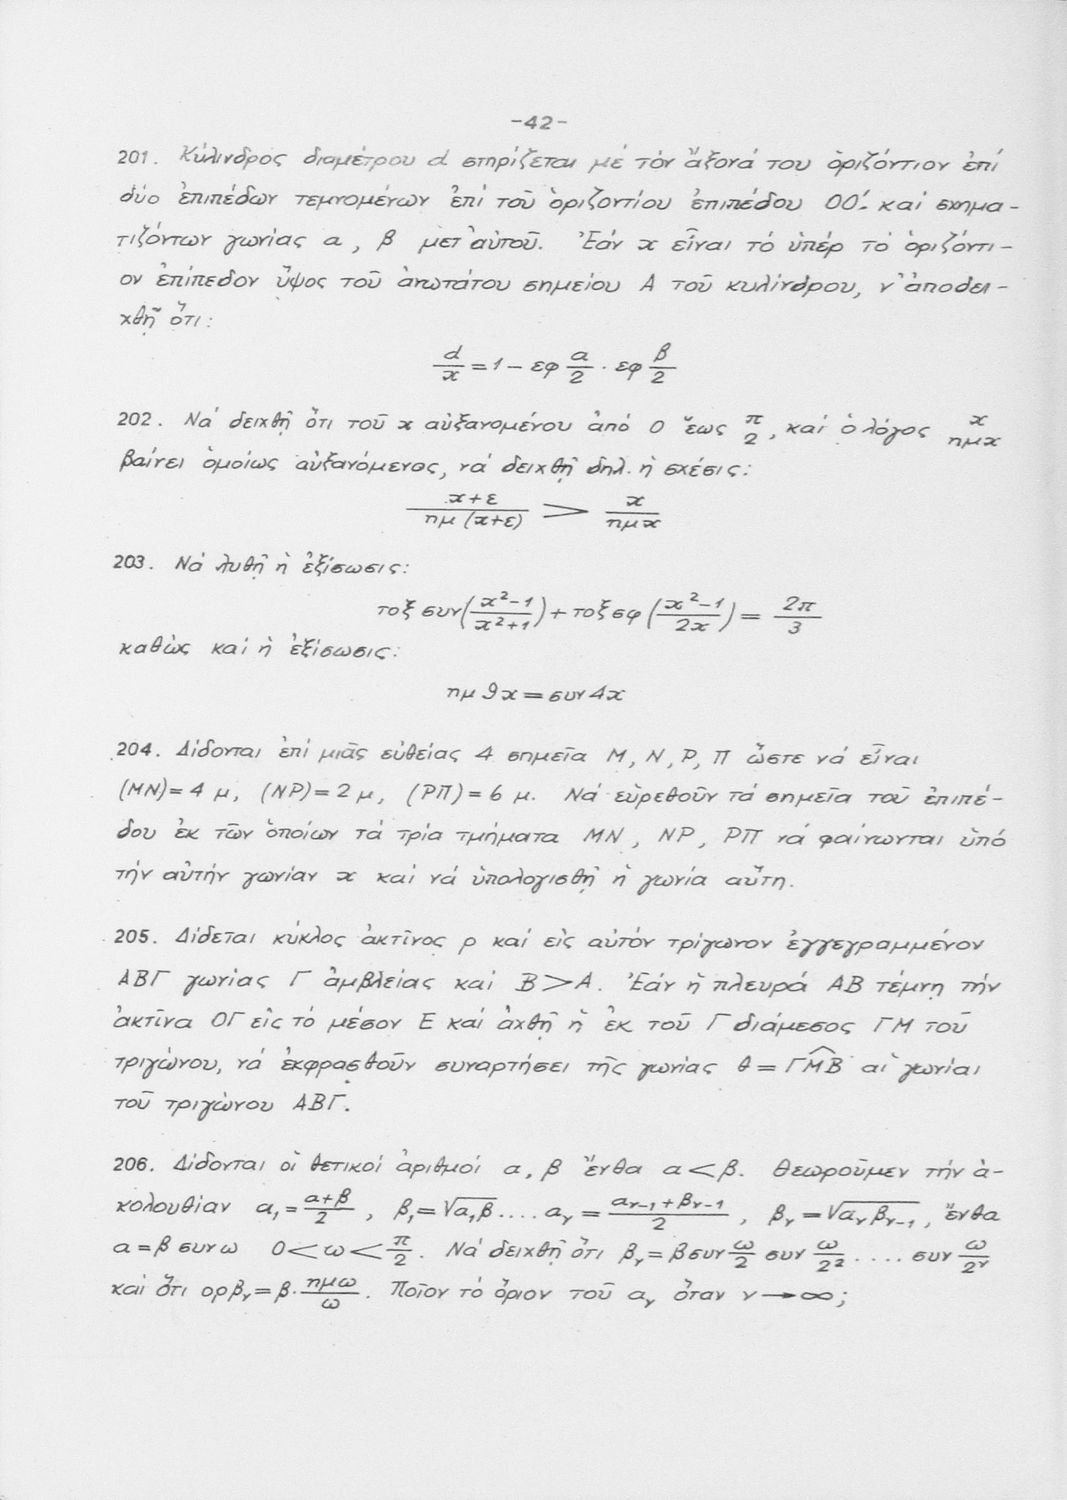 -42-
201. Κύλινδρος διαμέτρου d στηρίζεται μέ τόν ἄξονά του ὁριζόντιον ἐπί
δύο ἐπιπέδων τεμνομένων ἐπί τοῦ ὁριζοντίου ἐπιπέδου ΟΟ΄ καί σχημα-
τιζόντων γωνίας α, β μετ᾽αὐτοῦ. Ἐάν x εἶναι τό ὑπέρ τό ὁριζόντι-
ον ἐπίπεδον ὕψος τοῦ ἀνωτάτου σημείου Α τοῦ κυλίνδρου, ν᾽ἀποδει-
χθῇ ὅτι:
d/x = 1 - εφ α/2 · εφ β/2
202. Νά δειχθῇ ὅτι τοῦ x αὐξανομένου ἀπό 0 ἕως π/2, καί ὁ λόγος x/ημx
βαίνει ὁμοίως αὐξανόμενος, νά δειχθῇ δηλ. ἡ σχέσις:
(x+ε)/ημ(x+ε) > x/ημx
203. Νά λυθῇ ἡ ἐξίσωσις:
τοξ συν((x²-1)/(x²+1)) + τοξ σφ((x²-1)/2x) = 2π/3
καθὼς καί ἡ ἐξίσωσις:
ημ 9x = συν 4x
204. Δίδονται ἐπί μιᾶς εὐθείας 4 σημεῖα Μ, Ν, Ρ, Π ὥστε νά εἶναι
(ΜΝ)= 4 μ, (ΝΡ)= 2 μ, (ΡΠ)= 6 μ. Νά εὑρεθοῦν τά σημεῖα τοῦ ἐπιπέ-
δου ἐκ τῶν ὁποίων τά τρία τμήματα ΜΝ, ΝΡ, ΡΠ νά φαίνωνται ὑπό
τήν αὐτήν γωνίαν x καί νά ὑπολογισθῇ ἡ γωνία αὕτη.
205. Δίδεται κύκλος ἀκτῖνος ρ καί εἰς αὐτόν τρίγωνον ἐγγεγραμμένον
ΑΒΓ γωνίας Γ ἀμβλείας καί Β > Α. Ἐάν ἡ πλευρά ΑΒ τέμνῃ τήν
ἀκτῖνα ΟΓ εἰς τό μέσον Ε καί ἀχθῇ ἡ ἐκ τοῦ Γ διάμεσος ΓΜ τοῦ
τριγώνου, νά ἐκφρασθοῦν συναρτήσει τῆς γωνίας θ = ΓM̂Β αἱ γωνίαι
τοῦ τριγώνου ΑΒΓ.
206. Δίδονται οἱ θετικοί ἀριθμοί α, β ἔνθα α < β. Θεωροῦμεν τήν ἀ-
κολουθίαν α₁ = (α+β)/2, β₁ = √(α₁β) .... αᵥ = (αᵥ₋₁ + βᵥ₋₁)/2, βᵥ = √(αᵥ βᵥ₋₁), ἔνθα
α = β συν ω 0 < ω < π/2. Νά δειχθῇ ὅτι βᵥ = β συν ω/2 συν ω/2² .... συν ω/2ᵛ
καί ὅτι ορ βᵥ = β · ημω/ω. Ποῖον τό ὅριον τοῦ αᵥ ὅταν ν → ∞;